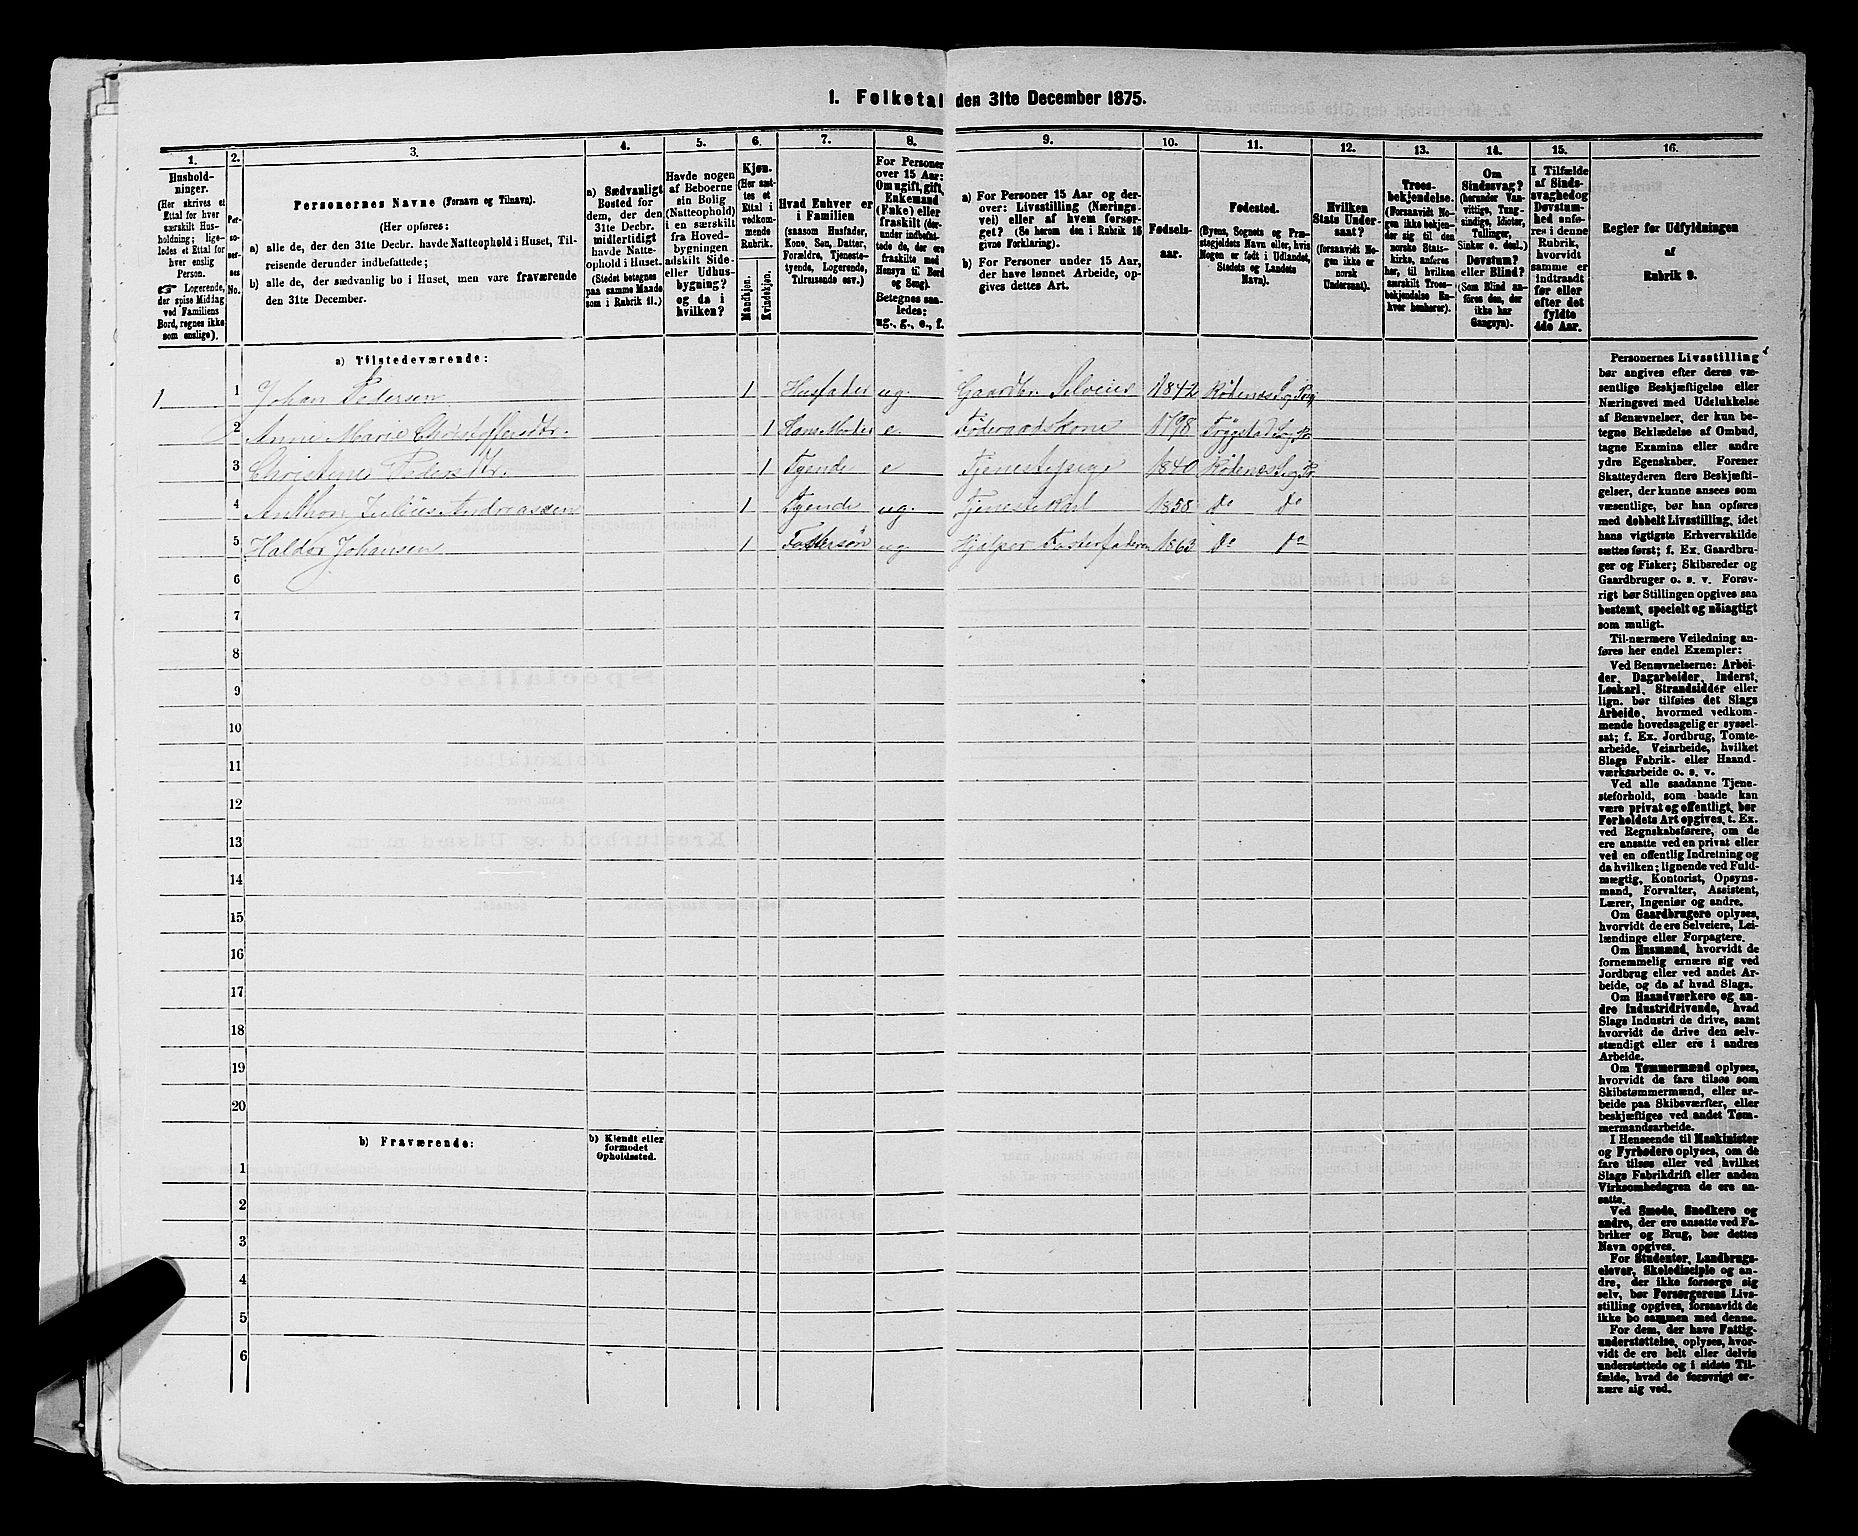 1. Folketal den 31te December 1875.
1. 2. 3. 4. 5. 6. 7. 8. 9. 10. 11. 12. 13. 14. 15. 16.
Hushold-
ninger.
(Her skrives et
Ettal for hver
særskilt Hus-
holdning; lige-
ledes et Ettal for
hver enslig
Person.
☞ Logerende,
der spise Middag
ved Familiens
Bord, regnes ikke
som enslige).
Per-
so-
ner-
nes
No.
Personernes Navne (Fornavn og Tilnavn).
(Her opføres:
a) alle de, der den 31te Decbr. havde Natteophold i Huset, Til-
reisende derunder indbefattede;
b) alle de, der sædvanlig bo i Huset, men vare fraværende
den 31te December.
a) Sædvanligt
Bosted for
dem, der den
31te Decbr.
midlertidigt
havde Natte-
ophold i Huset.
(Stedet betegnes
paa samme Maade
som i Rubrik 11.)
Havde nogen
af Beboerne
sin Bolig
(Natteophold)
i en særskilt
fra Hoved-
bygningen
adskilt Side-
eller Udhus-
bygning?
og da i
hvilken?
Kjøn.
(Her sæt-
tes et
Ettal i
vedkom-
mende
Rubrik.
Mandkjøn.
Kvindekjøn.
Hvad Enhver er
i Familien
(saasom Husfader,
Kone, Søn, Datter,
Forældre, Tjeneste-
tyende, Logerende,
Tilreisende osv.)
For Personer
over 15 Aar:
Om ugift, gift,
Enkemand
(Enke) eller
fraskilt (der-
under indbefat-
tede de, der ere
fraskilte med
Hensyn til Bord
og Seng).
Betegnes saa-
ledes:
ug., g., e., f.
a) For Personer 15 Aar og der-
over: Livsstilling (Nærings-
vei) eller af hvem forsør-
get? (Se herom den i Rubrik 16
givne Forklaring).
b) For Personer under 15 Aar,
der have lønnet Arbeide, op-
gives dettes Art.
Fødsels-
aar.
Fødested.
(Byens, Sognets og Præ-
stegjeldets Navn eller, hvis
Nogen er født i Udlandet,
Stedets og Landets
Navn).
Hvilken
Stats Under-
saat?
(forsaavidt No-
gen ikke er
norsk
Undersaat).
Troes-
bekjendelse.
(Forsaavidt No-
gen ikke bekjen-
der sig til den
norske Stats-
kirke, anføres
her, til hvilken
særskilt Troes-
bekjendelse En-
hver henhører).
Om
Sindssvag?
(herunder Van-
vittige, Tung-
sindige, Idioter,
Tullinger,
Sinker o. desl.)
Døvstum?
eller Blind?
(Som Blind an-
føres den, der
ikke har
Gangsyn).
I Tilfælde
af Sinds-
svaghed og
Døvstum-
hed anfø-
res i denne
Rubrik,
hvorvidt
samme er
indtraadt
før eller
efter det
fyldte
4de Aar.
Regler for Udfyldningen
af
Rubrik 9.
a) Tilstedeværende:
1 1 Johan Pedersen 1 Husfader ug. Gaardbr. Selveier 1842 Rødenæs S. og Præg.
2 Anne Marie Christoffersdtr. 1 Hans Moder e Føderaadskone 1798 Trøgstad S. og Pr
3 Christine Pedersdtr. 1 Tyende e Tjenestepige 1840 Rødenæs S. og Pr
4 Anthon Julius Andreassen 1 Tyende ug. Tjenestekarl 1858 Do Do
5 Halder Johansen 1 Fostersøn ug. Hjælper Fosterfaderen 1863 Do Do
6
7
8
9
10
11
12
13
14
15
16
17
18
19
20
b) Fraværende:
b) Kjendt eller
formodet
Opholdssted.
1
2
3
4
5
6
Personernes Livsstilling
bør angives efter deres væ-
sentlige Beskjæftigelse eller
Næringsvei med Udelukkelse
af Benævnelser, der kun be-
tegne Beklædelse af Ombud,
tagne Examina eller andre
ydre Egenskaber. Forener
Skatteyderen flere Beskjæfti-
gelser, der kunne ansees som
væsentlige, bør han opføres
med dobbelt Livsstilling, idet
hans vigtigste Erhvervskilde
sættes først; f. Ex. Gaardbru-
ger og Fisker; Skibsreder og
Gaardbruger o. s. v. Forøv-
rigt bør Stillingen opgives saa
bestemt, specielt og nøiagtigt
som muligt.
Til nærmere Veiledning an-
føres her endel Exempler:
Ved Benævnelserne: Arbei-
der, Dagarbeider, Inderst,
Løskarl, Strandsidder eller
lign. bør tilføies det Slags
Arbeide, hvormed vedkom-
mende hovedsagelig er syssel-
sat; f. Ex. Jordbrug, Tomte-
arbeide, Veiarbeide, hvilket
Slags Fabrik- eller Haand-
værksarbeide o. s. v.
Ved alle saadanne Tjene-
steforhold, som baade kan
være privat og offentligt, bør
Forholdets Art opgives, t. Ex.
ved Regnskabsførere, om de
ere ansatte ved en privat eller
ved en offentlig Indretning og
da hvilken; lignende ved Fuld-
mægtig, Kontorist, Opsyns-
mand, Forvalter, Assistent,
Lærer, Ingeniør og andre.
Om Gaardbrugere oplyses,
hvorvidt de ere Selveiere, Lei-
lændinge eller Forpagtere.
Om Husmænd, hvorvidt de
fornemmelig ernære sig ved
Jordbrug eller ved andet Ar-
beide, og da af hvad Slags.
Om Haandværkere og an-
dre Industridrivende, hvad
Slags Industri de drive, samt
hvorvidt de drive den selv-
stændigt eller ere i andres
Arbeide.
Om Tømmermænd oplyses,
hvorvidt de fare tilsøs som
Skibstømmermænd, eller ar-
beide paa Skibsværfter, eller
beskjæftiges ved andet Tøm-
mermandsarbeide.
I Henseende til Maskinister
og Fyrbødere oplyses, om de
fare tilsøs eller ved hvilket
Slags Fabrikdrift eller anden
Virksomhedsgren de ere an-
satte.
Ved Smede, Snedkere og
andre, der ere ansatte ved Fa-
briker og Brug, bør dettes
Navn opgives.
For Studenter, Landbrugs-
elever, Skoledisciple og an-
dre, der ikke forsørge sig
selv, bør Forsørgerens Livs-
stilling opgives, forsaavidt de
ikke bo sammen med denne.
For dem, der have Fattig-
understøttelse, oplyses, hvor-
vidt de ere helt eller delvis
understøttede og i sidste Til-
fælde, hvad de forøvrigt er-
nære sig ved.